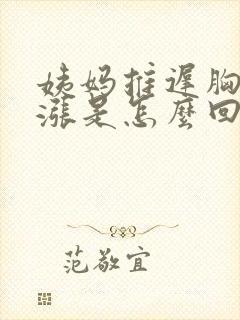 姨妈推遲胸
漲是怎麼回
范敬宜